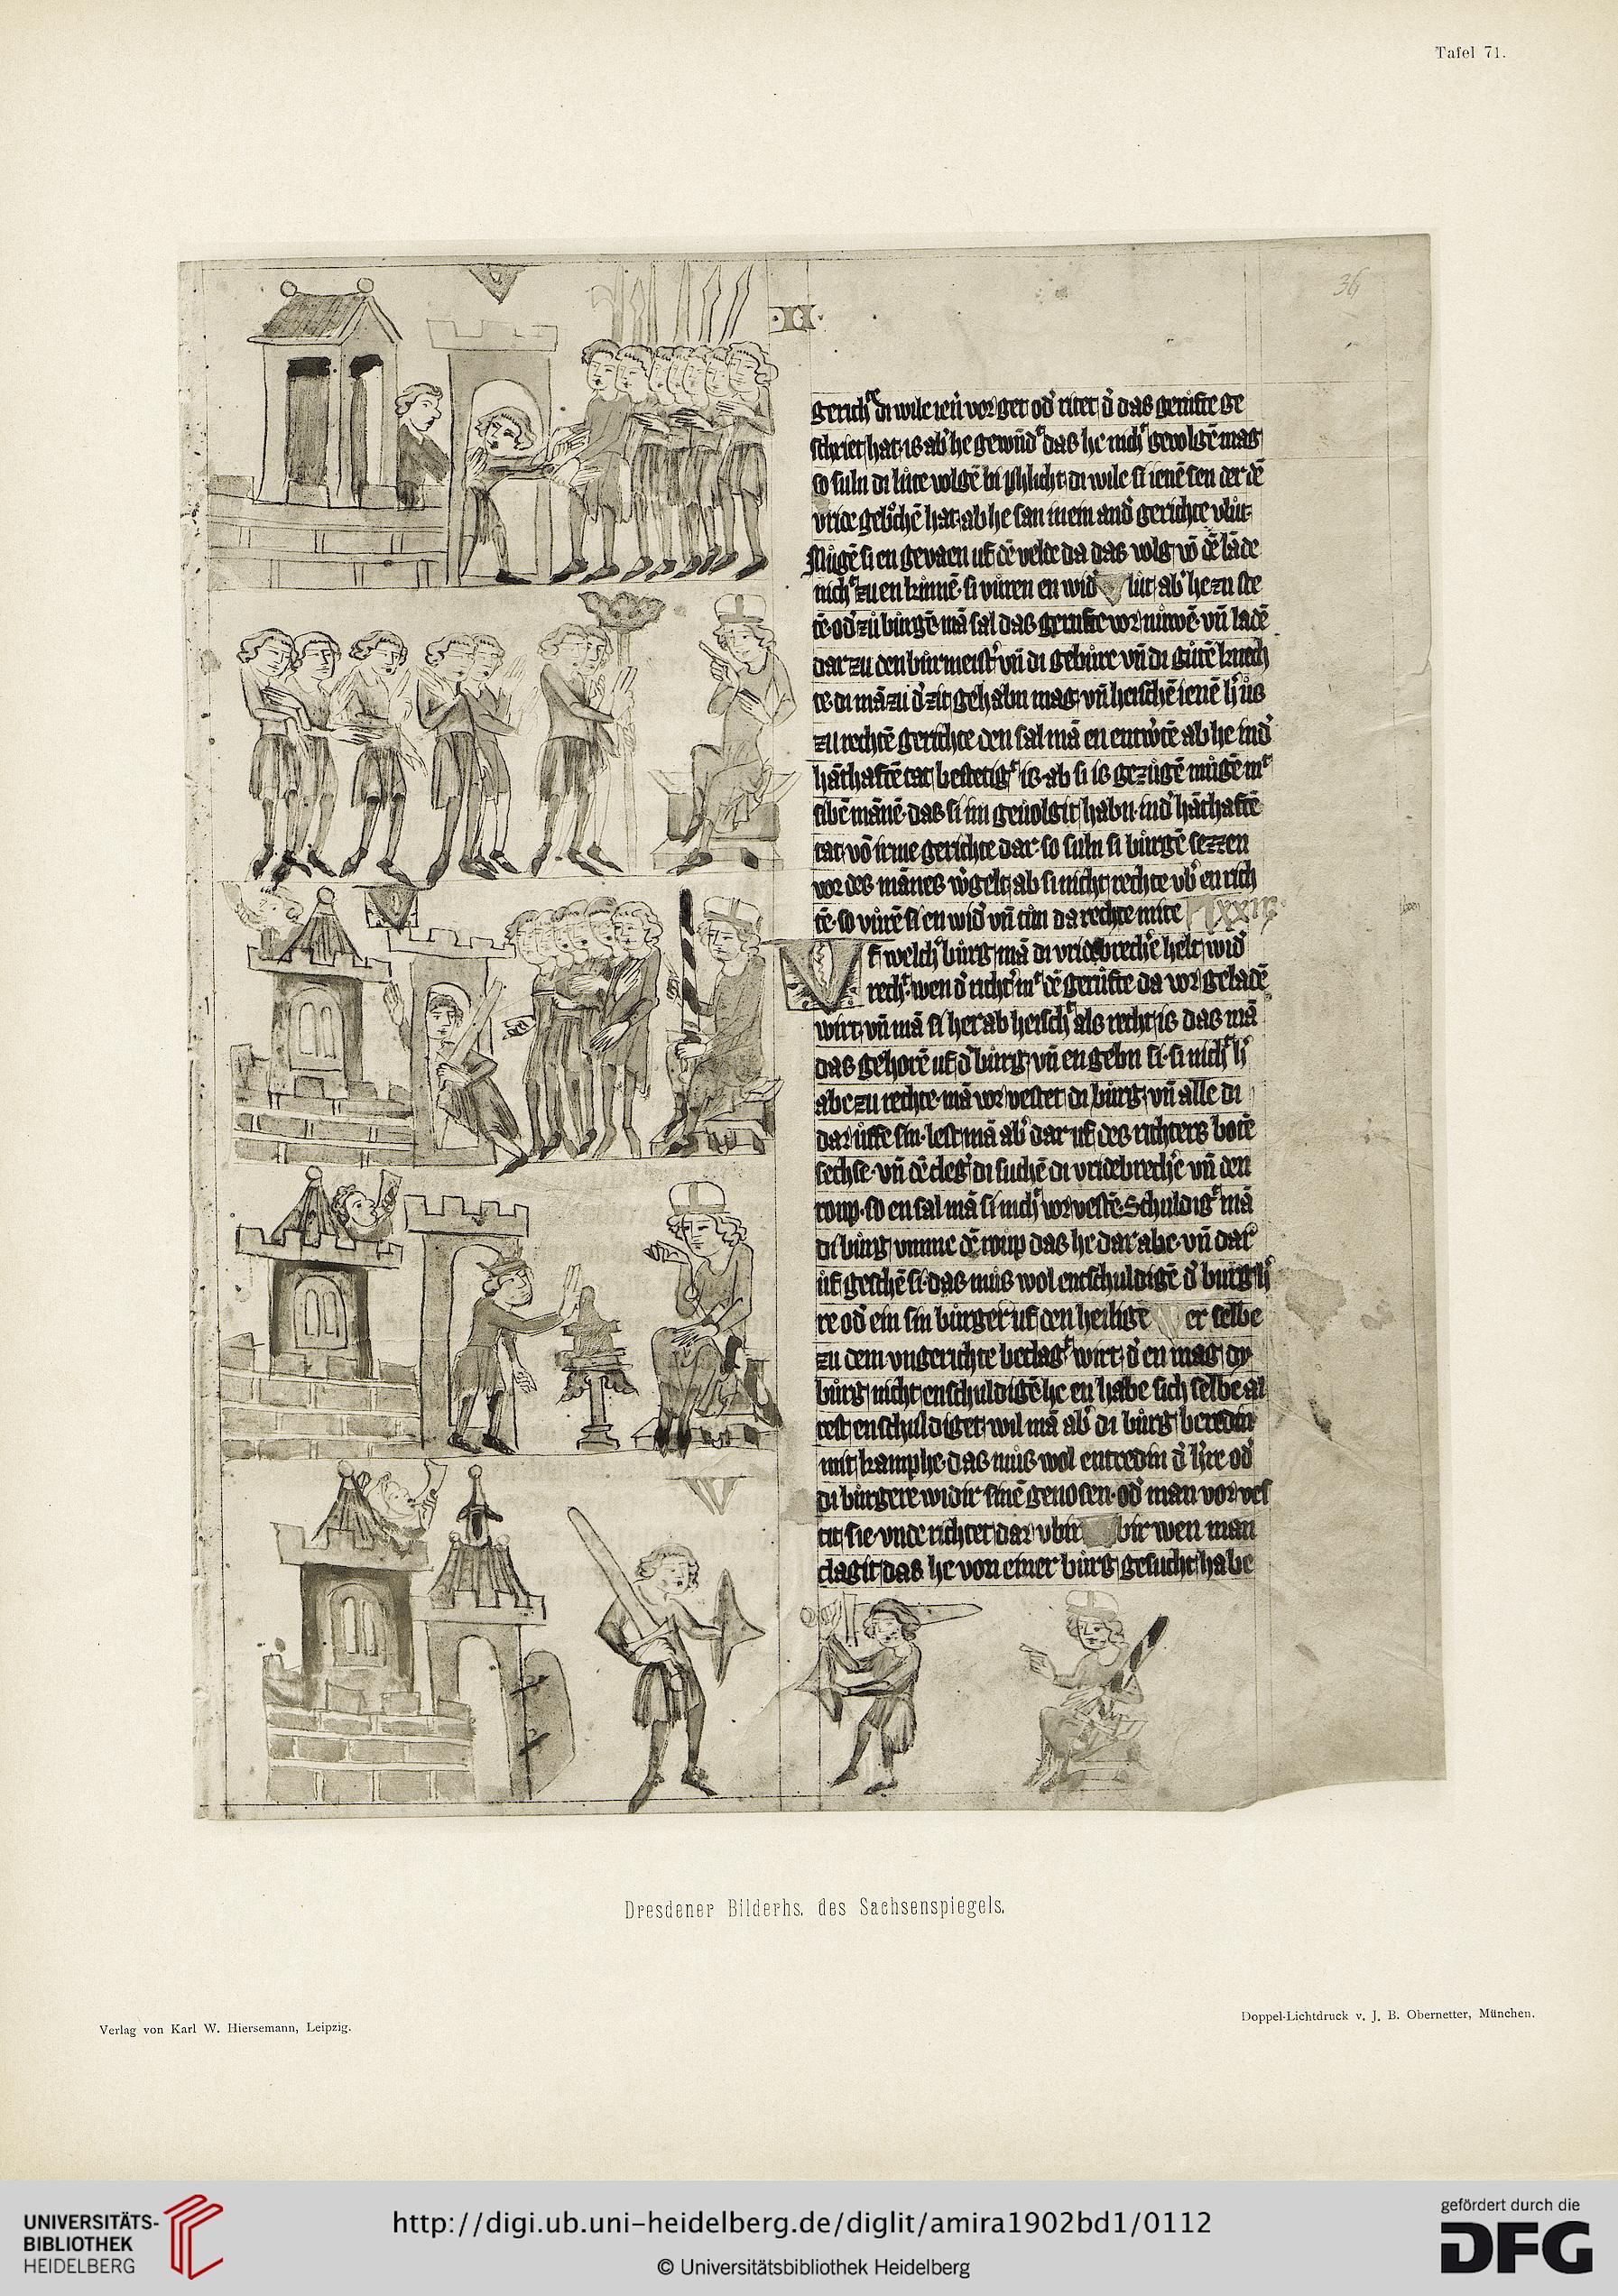 Tafel 71.
36
·II·
gerichᵗ di wile ien vorget od' ritet d' das gerufte ge
schriet hat is ab' he gewūdᵗ das he nichᵗ gevolgē mag
so suln di lute volgē bi phlicht di wile si ienē sen der dē
vride gebͦchē hat ab he san in ein and' gerichte vlut
Mugē si en gevaen uf dē velde da das volg vō dē lāde
nichᵗ zu en kūmē si vuren en wid' lut ab' he zu ste
tē od' zu burgē mā sal das gerufte vornuwē vn̄ ladē
dar zu den burmeist' vn̄ di gebure vn̄ di gutē knech
te di mā zu d' zit gehabn mag vn̄ heischē ienē h' us
zu rechtē gerichte den sal mā en entwͦtē ab he in d'
hāthaftē tat bestetigᵗ is ab si is gezugē mugē mᵗ
sibē mānē das si im gevolgit habn in d' hāthaftē
tat vō irme gerichte dar so suln si burgē sezzen
vor des mānes w'gelt ab si nicht rechte ub' en rich
tē so vurē si en wid' vn̄ tun da rechte mite
Vf welch' burg mā di vridebrech'e helt wid'
rechᵗ wen d' richt' mᵗ dē gerufte da vor geladē
wirt vn̄ mā si her ab heischᵗ als recht is das mā
das gehorē uf d' burg vn̄ en gebn si si nichᵗ h'
abe zu rechte mā vorvestet di burg vn̄ alle di
dar uffe sin lest mā ab' dar uf des richters botē
sechse vn̄ dē cleg' di suchē di vridebrech'e vn̄ den
roup so en sal mā si nichᵗ vorvestē Schuldigᵗ mā
di burg umme dē roup das he dar abe vn̄ dar
uf geschē si das mus wol entschuldigē d' burg h'
re od' ein sin burger uf den heiligē er selbe
zu dem ungerichte beclagᵗ wirt d' en mag dy
burg nicht enschuldigē he en habe sich selbe al
rest enschuldiget wil mā ab' di burg beredin
mit kamphe das mus wol entredin d' h're od'
di burgere widir sinē genosen od' man vorves
tit sie unde richtet dar ubir bir wen man
clagit das he von einer burg gesucht habe
Dresdener Bilderhs. des Sachsenspiegels.
Verlag von Karl W. Hiersemann, Leipzig.
Doppel-Lichtdruck v. J. B. Obernetter, München.
UNIVERSITÄTS-
BIBLIOTHEK
HEIDELBERG
http://digi.ub.uni-heidelberg.de/diglit/amira1902bd1/0112
© Universitätsbibliothek Heidelberg
gefördert durch die
DFG